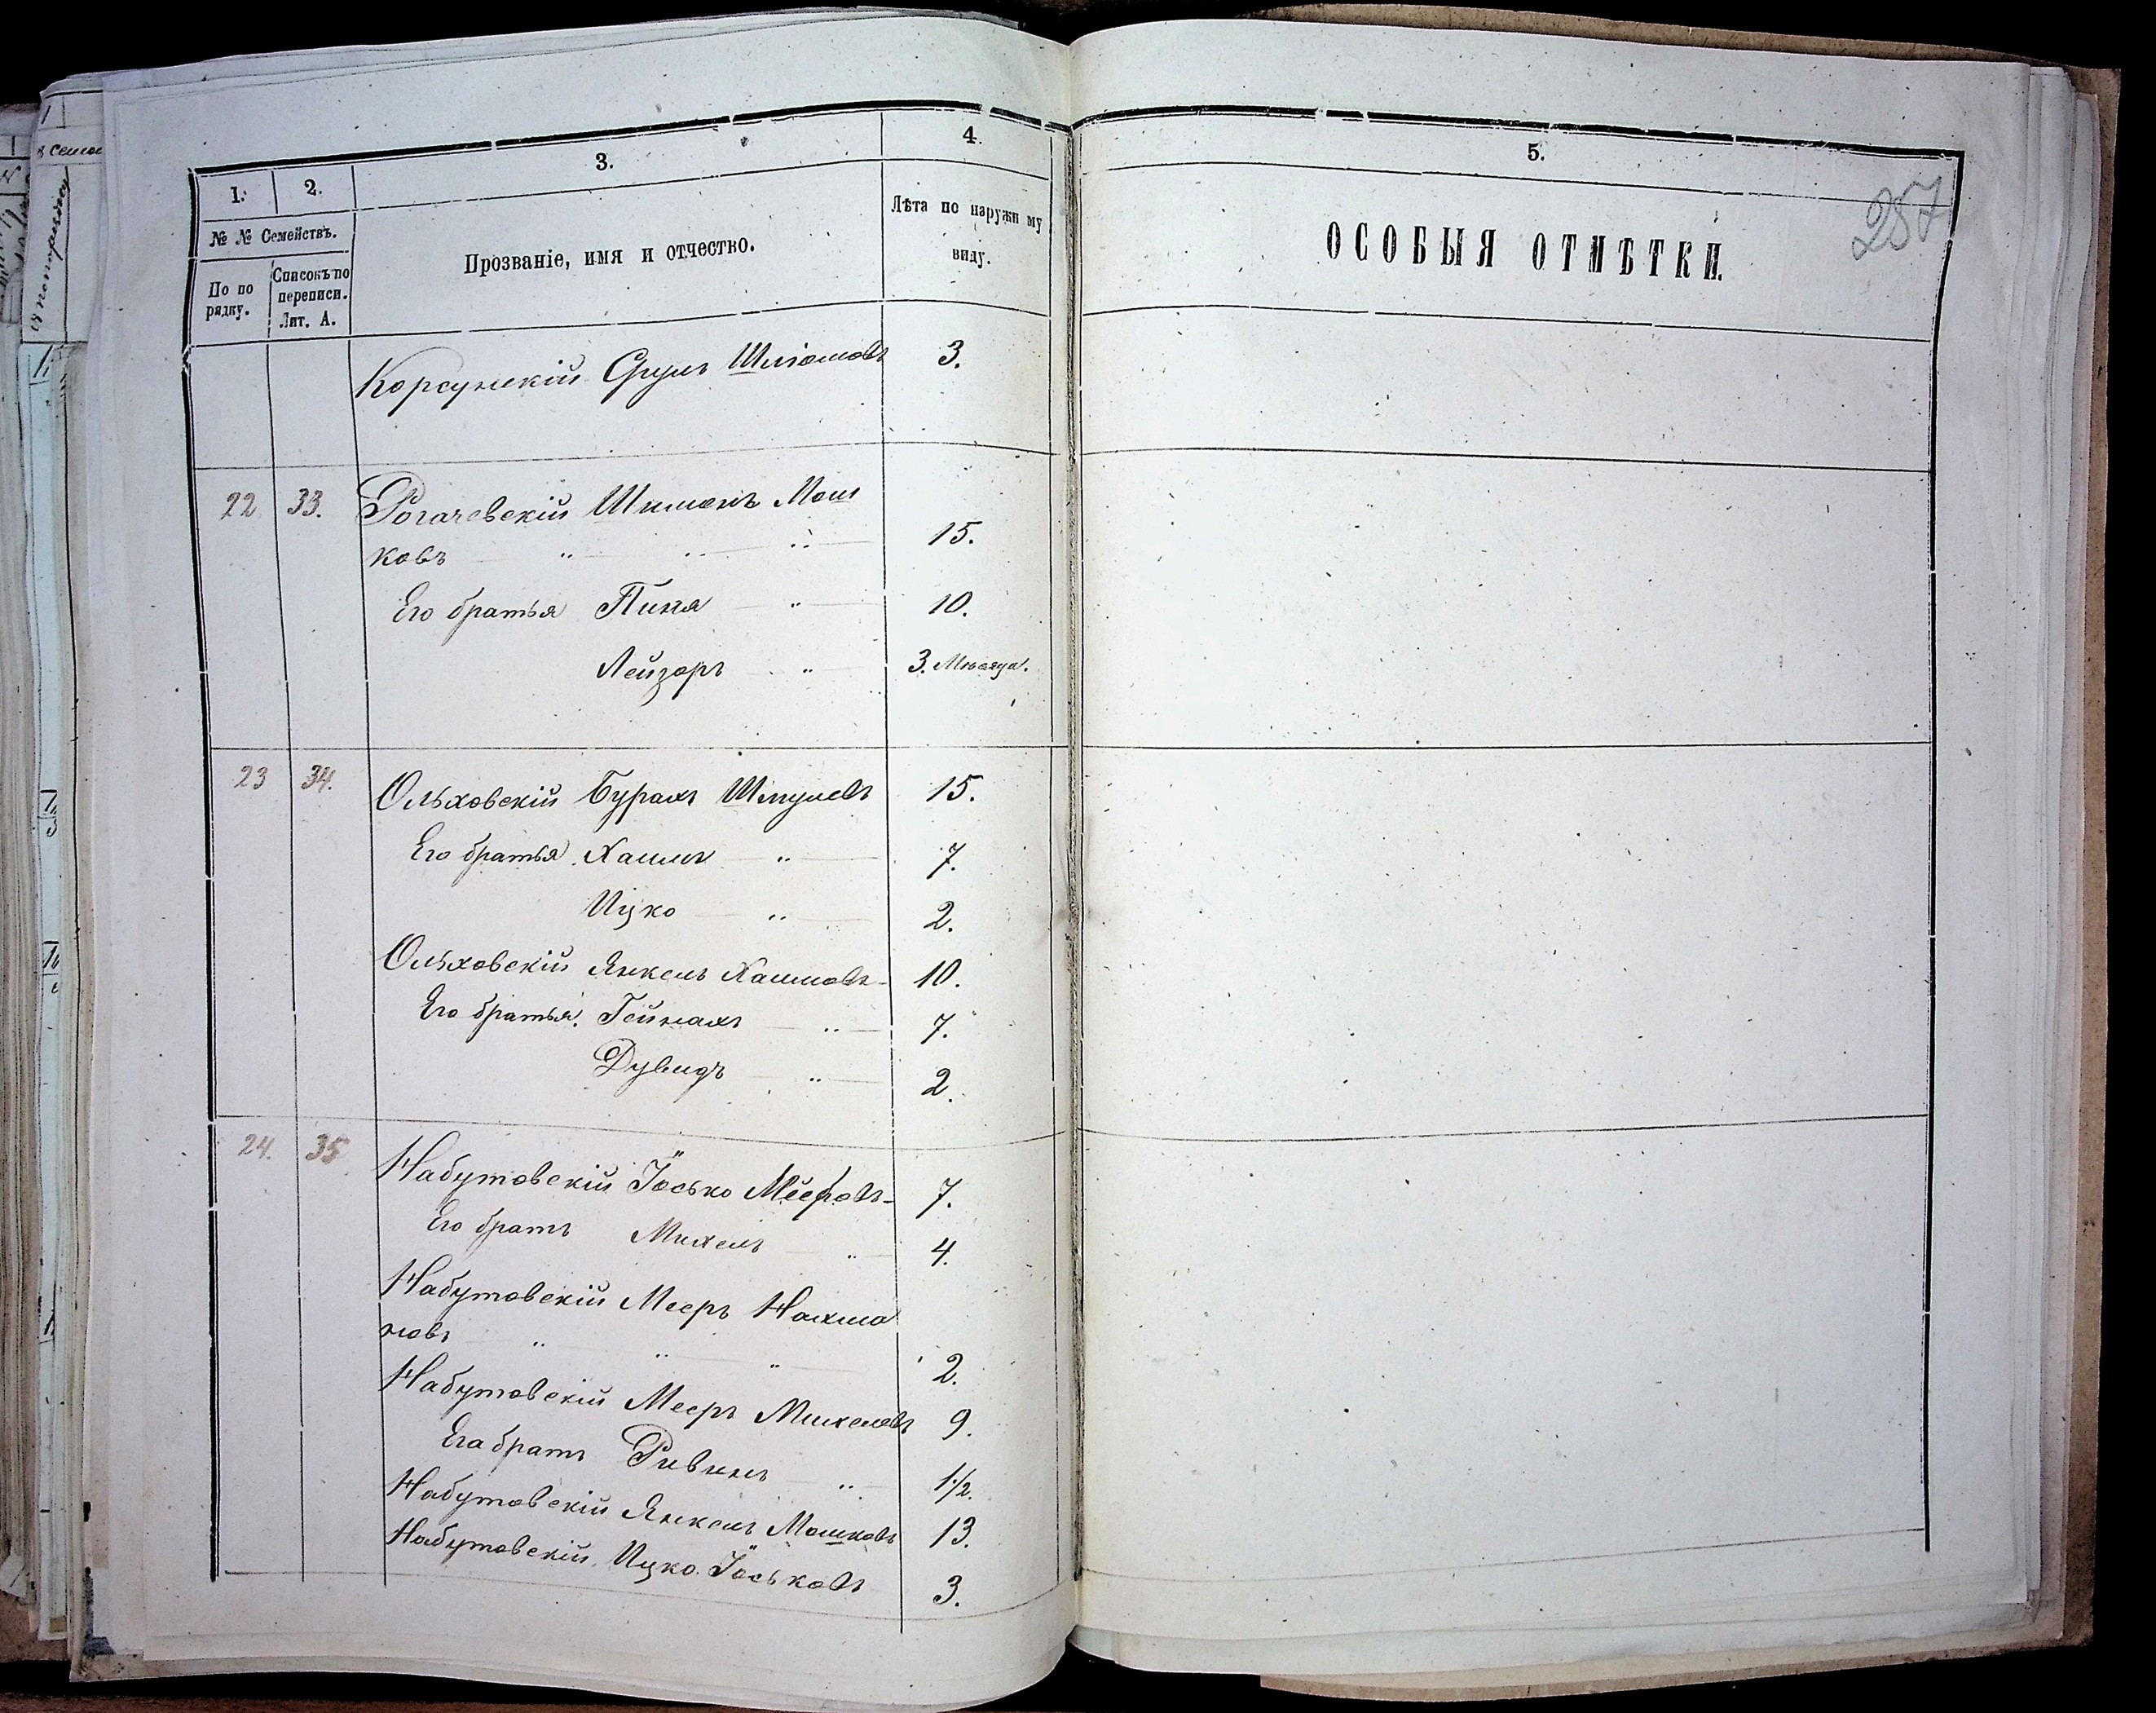 1. 2. 3. 4. 5.
257
№ № Семействъ.
По по рядку.
Списокъ по переписи. Лит. А.
Прозваніе, имя и отчество.
Лѣта по наружн му виду.
ОСОБЫЯ ОТМѢТКИ.
Корсунскій Сруль Шліомовъ 3.
22 33. Рогачевскій Шимонъ Мош
ковъ " " " 15.
Его братья Пиня " 10.
Лейзоръ " 3. Мѣсяца.
23 34. Ольховскій Бурахъ Шмулевъ 15.
Его братья Хаимъ " 7.
Ицко " 2.
Ольховскій Янкель Хаимовъ 10.
Его братья Гейнахъ " 7.
Дувидъ " 2.
24. 35 Набутовскій Іосько Мееровъ 7.
Его братъ Михель " 4.
Набутовскій Мееръ Нахма
новъ " " " 2.
Набутовскій Мееръ Михелевъ 9.
Его братъ Рывинъ " 1/2.
Набутовскій Янкель Мошковъ 13.
Набутовскій Ицко Іоськовъ 3.